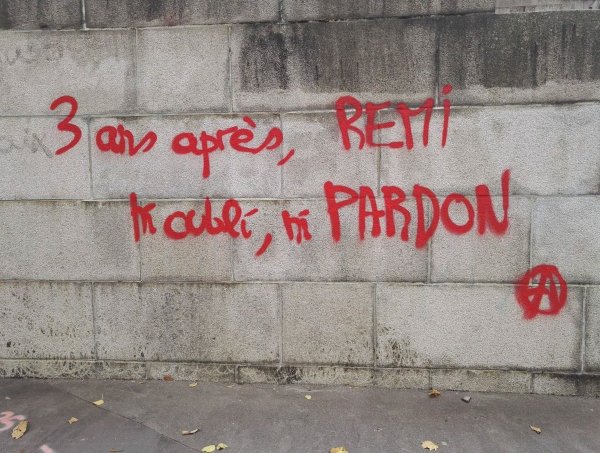 3 ans après, REMi
Ni oubli, ni PARDON